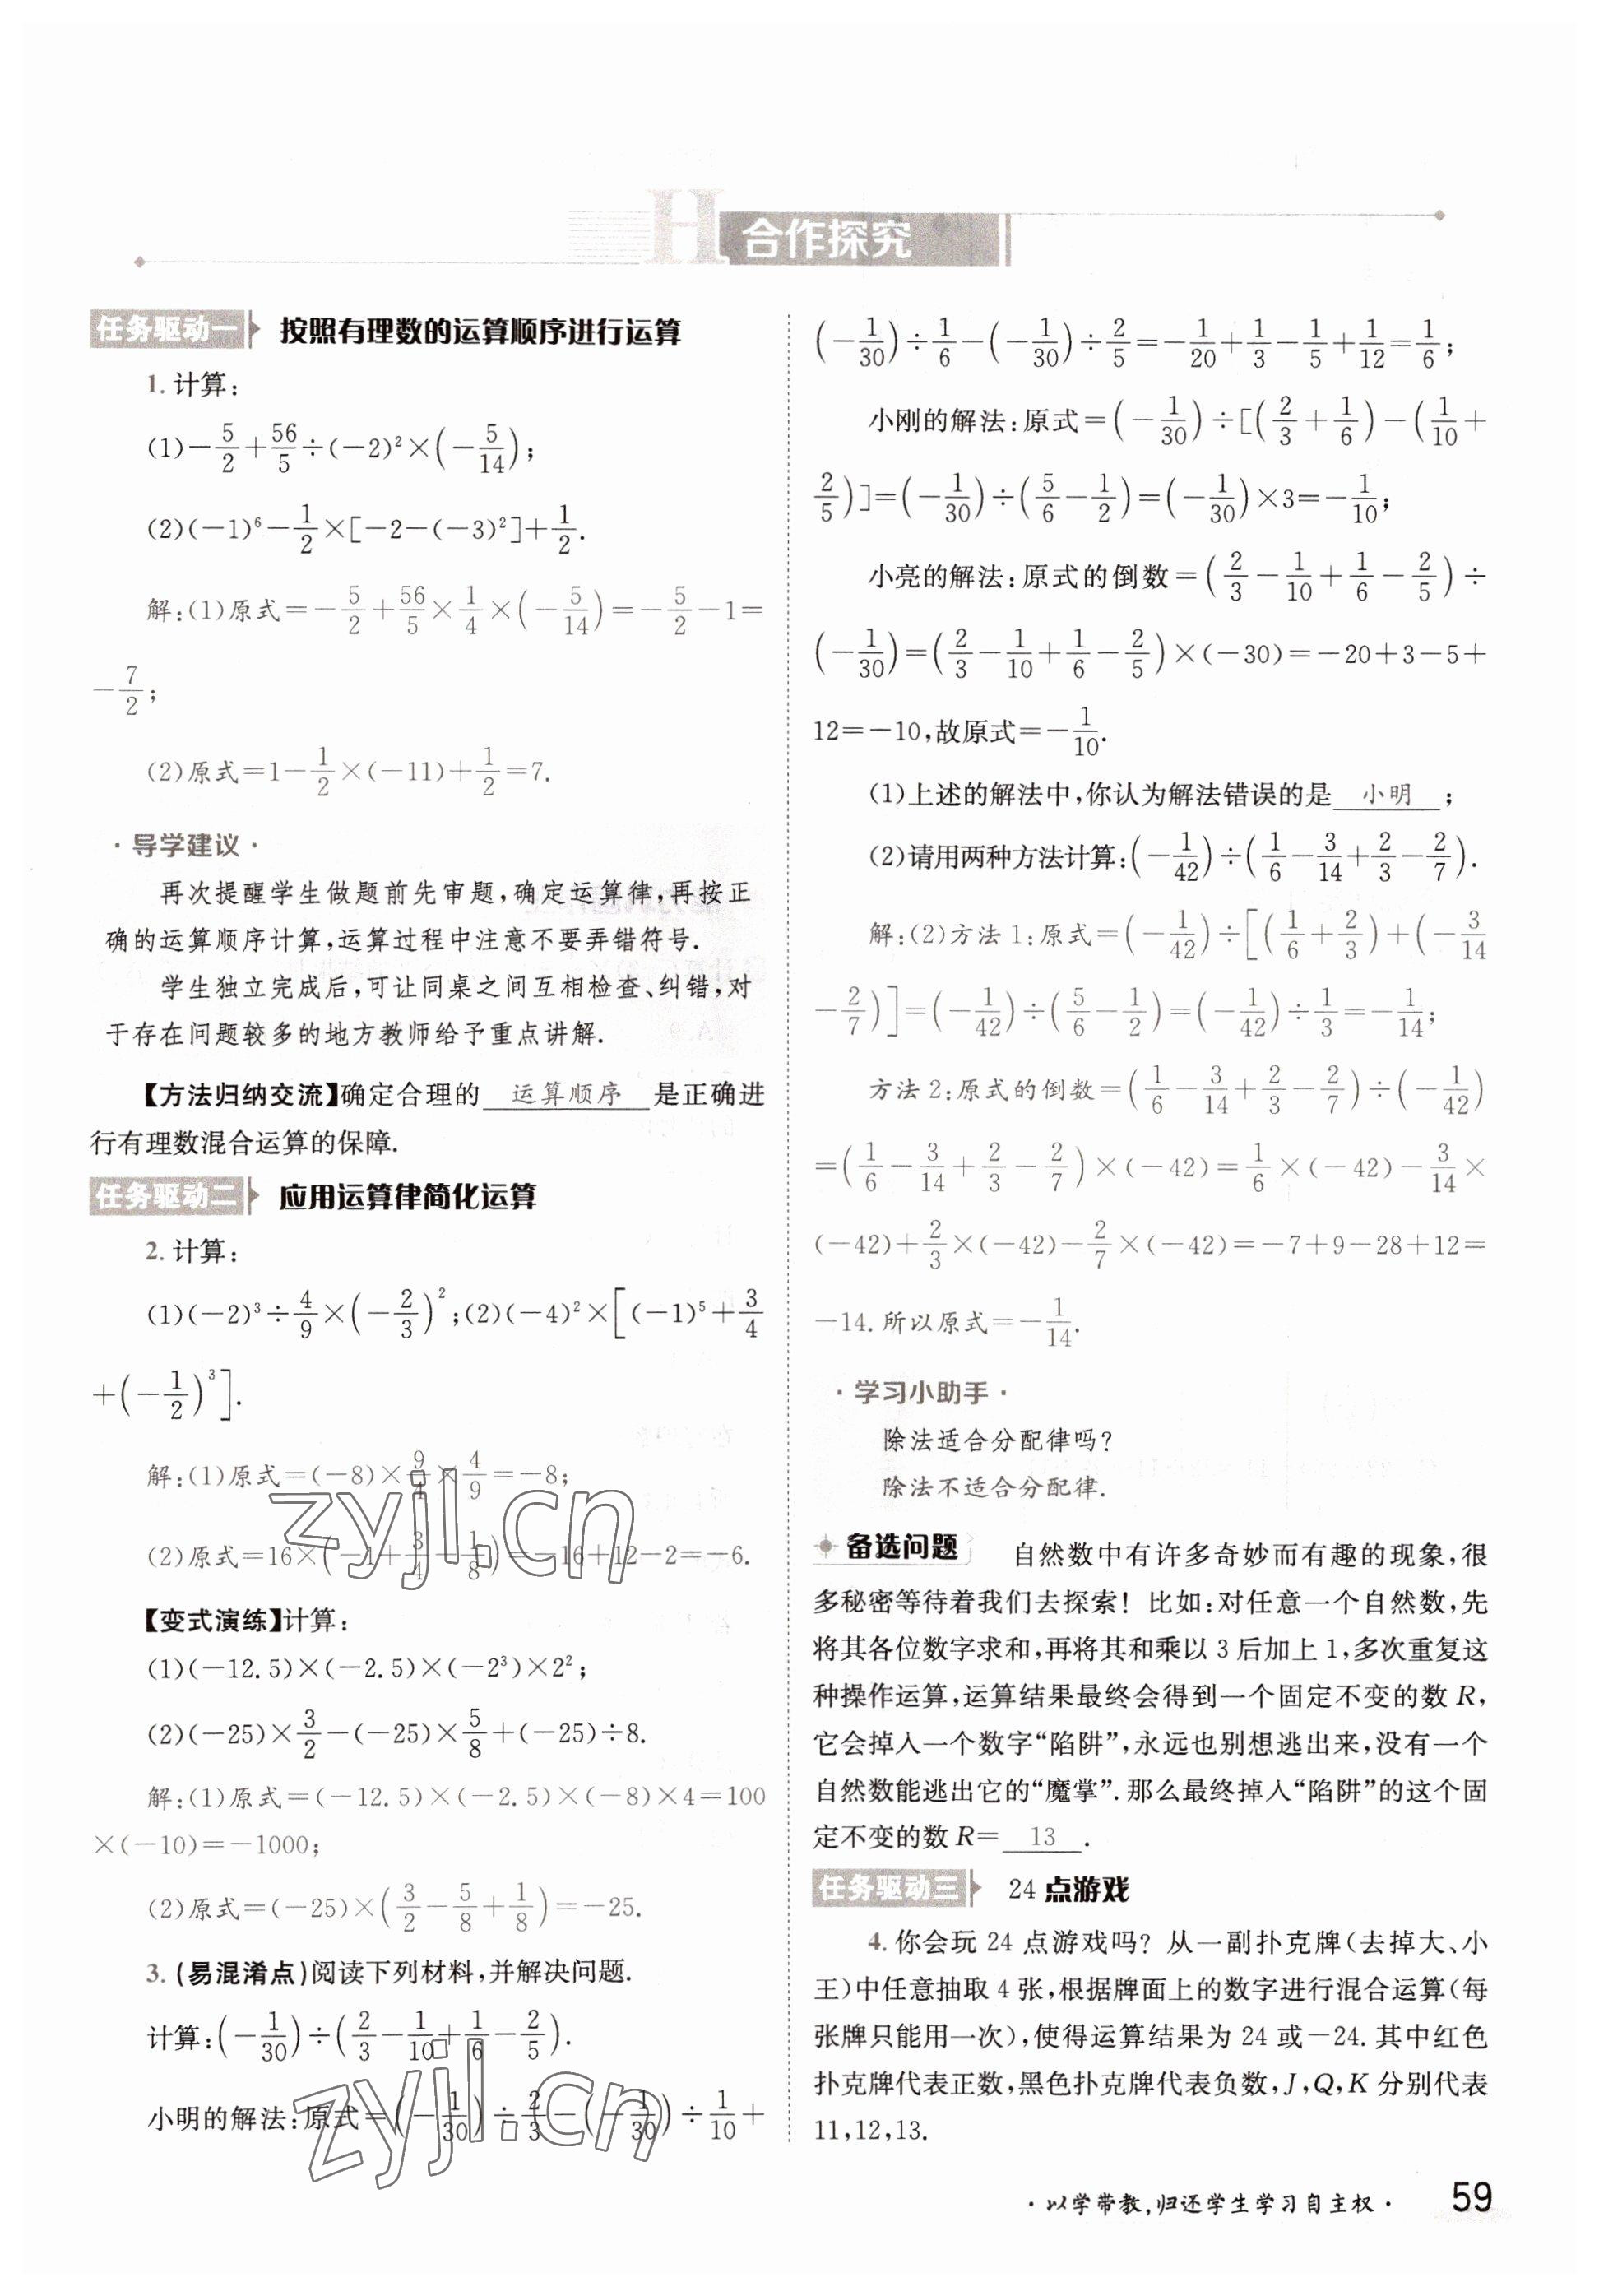 H 合作探究
任务驱动一 按照有理数的运算顺序进行运算
1. 计算:
(1)-5/2+56/5÷(-2)²×(-5/14);
(2)(-1)⁶-1/2×[-2-(-3)²]+1/2.
解:(1)原式=-5/2+56/5×1/4×(-5/14)=-5/2-1=
-7/2;
(2)原式=1-1/2×(-11)+1/2=7.
·导学建议·
再次提醒学生做题前先审题,确定运算律,再按正
确的运算顺序计算,运算过程中注意不要弄错符号.
学生独立完成后,可让同桌之间互相检查、纠错,对
于存在问题较多的地方教师给予重点讲解.
【方法归纳交流】确定合理的 运算顺序 是正确进
行有理数混合运算的保障.
任务驱动二 应用运算律简化运算
2. 计算:
(1)(-2)³÷4/9×(-2/3)²;(2)(-4)²×[(-1)⁵+3/4
+(-1/2)³].
解:(1)原式=(-8)×9/4×4/9=-8;
(2)原式=16×(-1+3/4-1/8)=-16+12-2=-6.
【变式演练】计算:
(1)(-12.5)×(-2.5)×(-2³)×2²;
(2)(-25)×3/2-(-25)×5/8+(-25)÷8.
解:(1)原式=(-12.5)×(-2.5)×(-8)×4=100
×(-10)=-1000;
(2)原式=(-25)×(3/2-5/8+1/8)=-25.
3. (易混淆点)阅读下列材料,并解决问题.
计算:(-1/30)÷(2/3-1/10+1/6-2/5).
小明的解法:原式=(-1/30)÷2/3-(-1/30)÷1/10+
(-1/30)÷1/6-(-1/30)÷2/5=-1/20+1/3-1/5+1/12=1/6;
小刚的解法:原式=(-1/30)÷[(2/3+1/6)-(1/10+
2/5)]=(-1/30)÷(5/6-1/2)=(-1/30)×3=-1/10;
小亮的解法:原式的倒数=(2/3-1/10+1/6-2/5)÷
(-1/30)=(2/3-1/10+1/6-2/5)×(-30)=-20+3-5+
12=-10,故原式=-1/10.
(1)上述的解法中,你认为解法错误的是 小明 ;
(2)请用两种方法计算:(-1/42)÷(1/6-3/14+2/3-2/7).
解:(2)方法1:原式=(-1/42)÷[(1/6+2/3)+(-3/14
-2/7)]=(-1/42)÷(5/6-1/2)=(-1/42)÷1/3=-1/14;
方法2:原式的倒数=(1/6-3/14+2/3-2/7)÷(-1/42)
=(1/6-3/14+2/3-2/7)×(-42)=1/6×(-42)-3/14×
(-42)+2/3×(-42)-2/7×(-42)=-7+9-28+12=
-14.所以原式=-1/14.
·学习小助手·
除法适合分配律吗?
除法不适合分配律.
备选问题 自然数中有许多奇妙而有趣的现象,很
多秘密等待着我们去探索! 比如:对任意一个自然数,先
将其各位数字求和,再将其和乘以3后加上1,多次重复这
种操作运算,运算结果最终会得到一个固定不变的数R,
它会掉入一个数字“陷阱”,永远也别想逃出来,没有一个
自然数能逃出它的“魔掌”.那么最终掉入“陷阱”的这个固
定不变的数R= 13 .
任务驱动三 24点游戏
4. 你会玩24点游戏吗? 从一副扑克牌(去掉大、小
王)中任意抽取4张,根据牌面上的数字进行混合运算(每
张牌只能用一次),使得运算结果为24或-24.其中红色
扑克牌代表正数,黑色扑克牌代表负数,J,Q,K分别代表
11,12,13.
zyjl.cn
zyjl.cn
·以学带教,归还学生学习自主权· 59